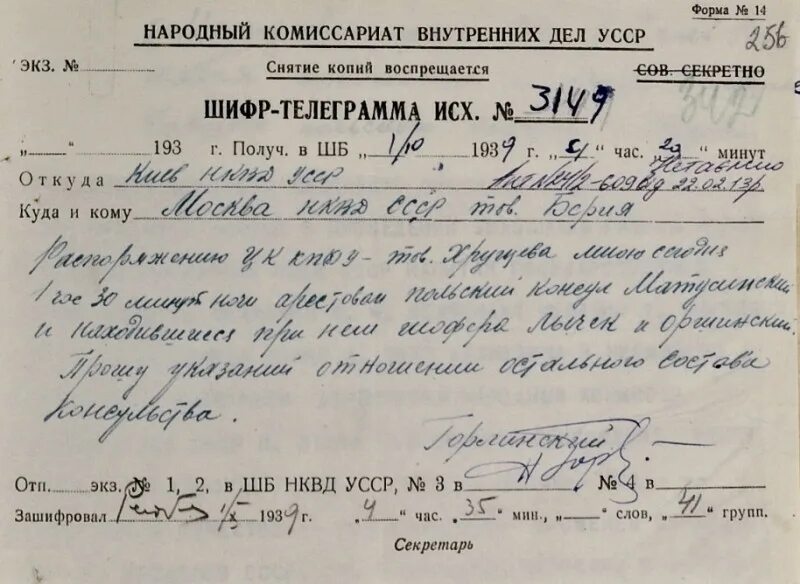 Форма № 14
256
НАРОДНЫЙ КОМИССАРИАТ ВНУТРЕННИХ ДЕЛ УССР
ЭКЗ. №
Снятие копий воспрещается
СОВ. СЕКРЕТНО
ШИФР-ТЕЛЕГРАММА ИСХ. № 3149
„ “ 193 г. Получ. в ШБ „1/10 “ 1939 г. „4 час. 20 “ минут
Откуда Киев НКВД УССР 22.02.13р.
Куда и кому Москва НКВД СССР тов. Берия
Распоряжению ЦК КП/б/У - тов. Хрущева мною сегодня
1 час 30 минут ночи арестован польский консул Матусинский
и находившиеся при нем шофера Лычек и Оршинский.
Прошу указаний отношении остального состава
консульства.
Горлинский
Отп. экз. № 1, 2, в ШБ НКВД УССР, № 3 в № 4 в
Зашифровал 1/X 1939 г. „4“ час. „35“ мин., „ “ слов, „41“ групп.
Секретарь